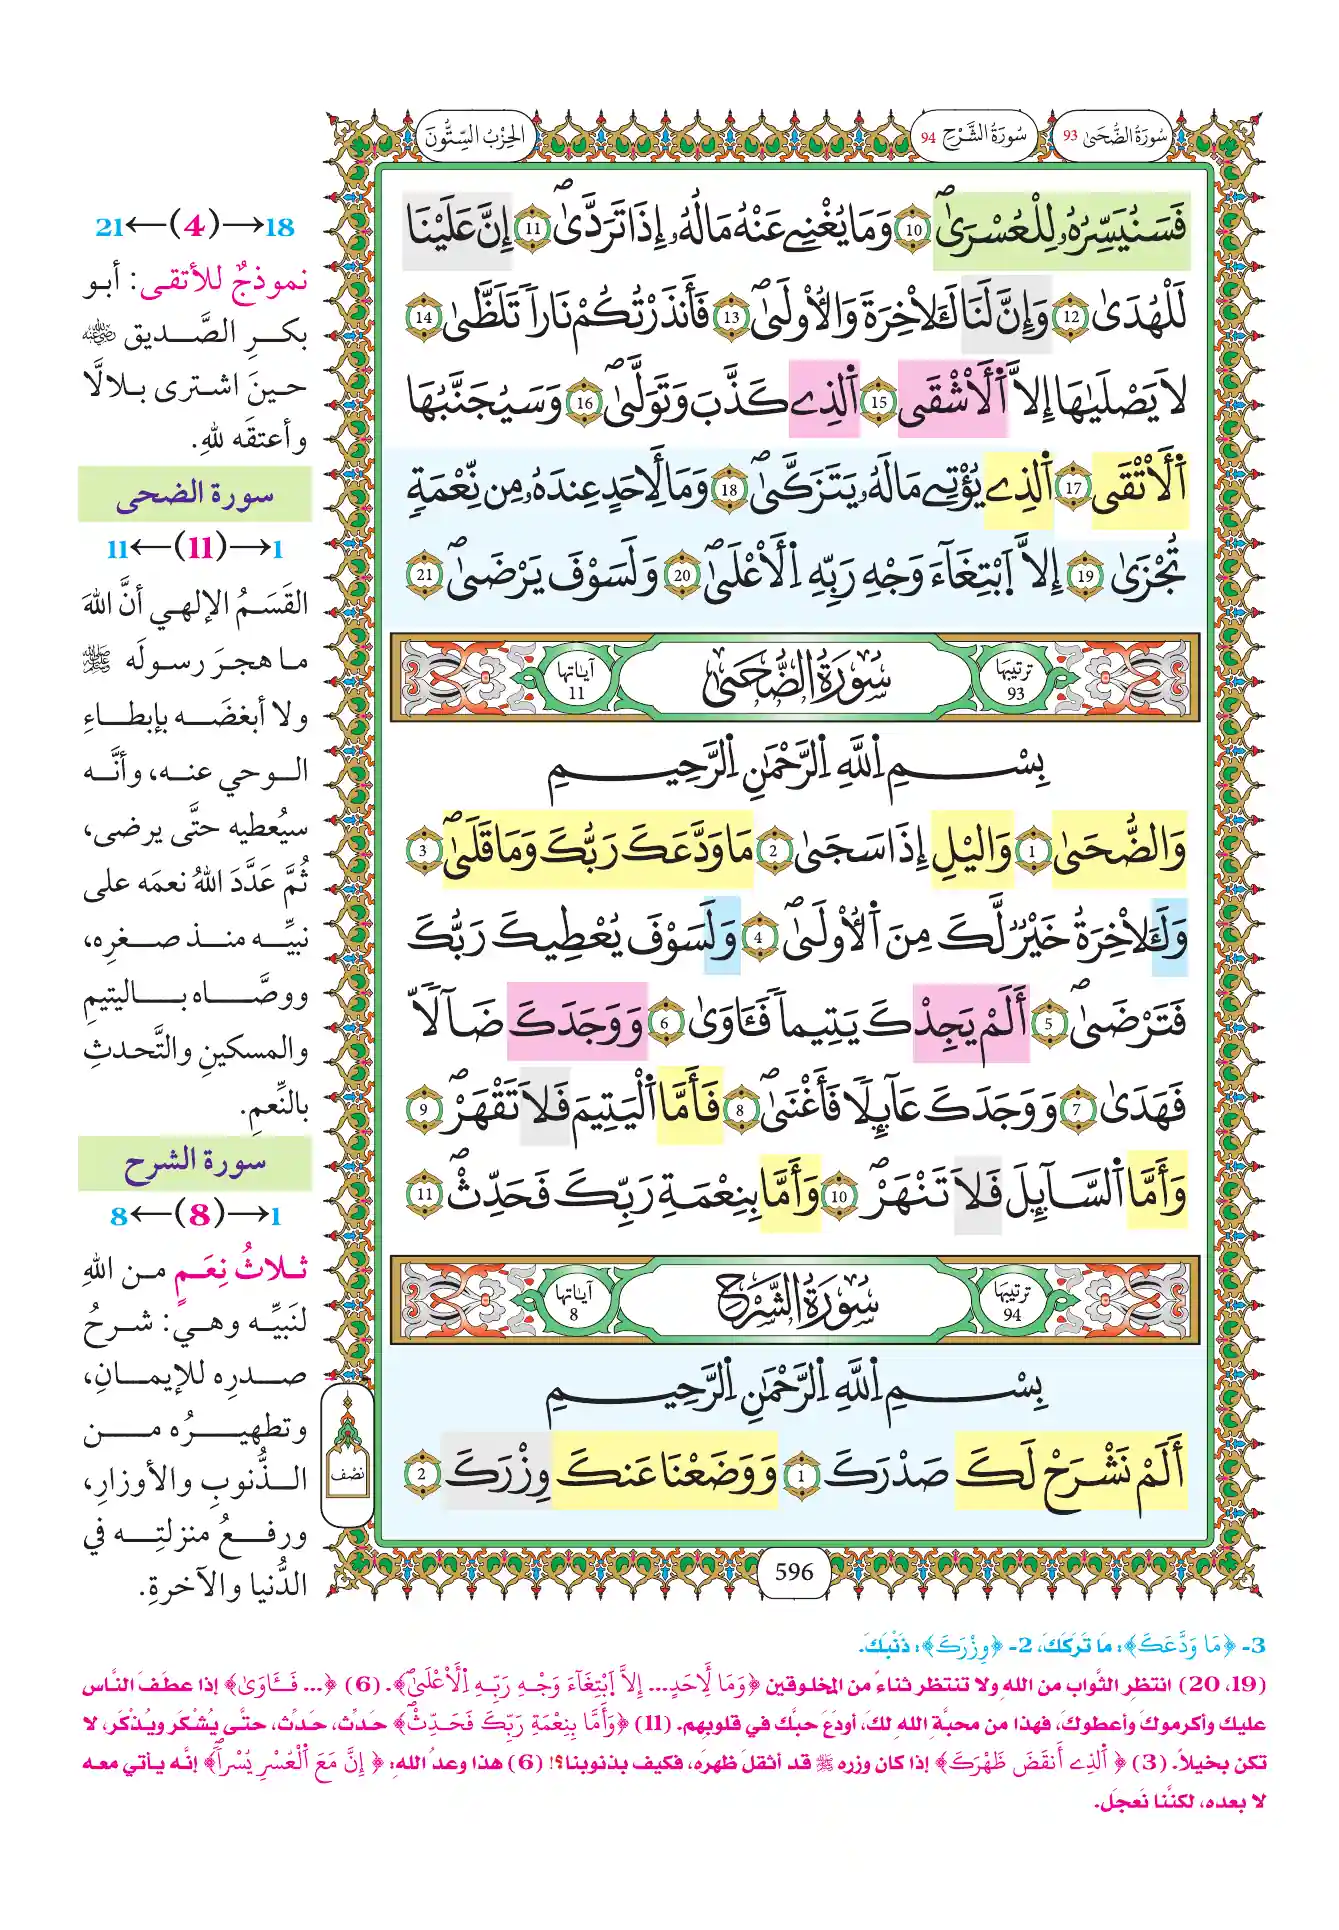 سُورَةُ الضُّحَىٰ 93
سُورَةُ الشَّرْحِ 94
الحِزْبُ السِّتُّونَ
فَسَنُيَسِّرُهُۥ لِلْعُسْرَىٰۖ 10 وَمَا يُغْنِے عَنْهُ مَالُهُۥٓ إِذَا تَرَدَّىٰٓۖ 11 إِنَّ عَلَيْنَا
لَلْهُدَىٰ 12 وَإِنَّ لَنَا لَلَاخِرَةَ وَالُاولَىٰۖ 13 فَأَنذَرْتُكُمْ نَاراٗ تَلَظَّىٰ 14
لَا يَصْلَىٰهَآ إِلَّا اَلَاشْقَى 15 اَلذِے كَذَّبَ وَتَوَلَّىٰۖ 16 وَسَيُجَنَّبُهَا
اَلَاتْقَى 17 اَلذِے يُؤْتِے مَالَهُۥ يَتَزَكَّىٰۖ 18 وَمَا لِأَحَدٍ عِندَهُۥ مِن نِّعْمَةٖ
تُجْزَىٰٓ 19 إِلَّا اَبْتِغَآءَ وَجْهِ رَبِّهِ اِلَاعْلَىٰۖ 20 وَلَسَوْفَ يَرْضَىٰۖ 21
ترتيبها 93
سُورَةُ الضُّحَىٰ
آياتها 11
بِسْمِ اِللَّهِ اِلرَّحْمَٰنِ اِلرَّحِيمِ
وَالضُّحَىٰ 1 وَاليْلِ إِذَا سَجَىٰ 2 مَا وَدَّعَكَ رَبُّكَ وَمَا قَلَىٰۖ 3
وَلَلَاخِرَةُ خَيْرٞ لَّكَ مِنَ اَلُاولَىٰۖ 4 وَلَسَوْفَ يُعْطِيكَ رَبُّكَ
فَتَرْضَىٰٓۖ 5 أَلَمْ يَجِدْكَ يَتِيماٗ فَـَٔاوَىٰ 6 وَوَجَدَكَ ضَآلّاٗ
فَهَدَىٰ 7 وَوَجَدَكَ عَآئِلاٗ فَأَغْنَىٰۖ 8 فَأَمَّا اَلْيَتِيمَ فَلَا تَقْهَرْۖ 9
وَأَمَّا اَلسَّآئِلَ فَلَا تَنْهَرْۖ 10 وَأَمَّا بِنِعْمَةِ رَبِّكَ فَحَدِّثْۖ 11
ترتيبها 94
سُورَةُ الشَّرْحِ
آياتها 8
بِسْمِ اِللَّهِ اِلرَّحْمَٰنِ اِلرَّحِيمِ
أَلَمْ نَشْرَحْ لَكَ صَدْرَكَ 1 وَوَضَعْنَا عَنكَ وِزْرَكَ 2
596
18→(4)←21
نموذجٌ للأتقى: أبو
بكرِ الصَّديق رضي الله عنه
حينَ اشترى بلالًا
وأعتقَه للهِ.
سورة الضحى
1→(11)←11
القَسَمُ الإلهي أنَّ اللهَ
ما هجرَ رسولَه ﷺ
ولا أبغضَه بإبطاءِ
الوحي عنه، وأنَّه
سيُعطيه حتَّى يرضى،
ثُمَّ عَدَّدَ اللهُ نعمَه على
نبيِّه منذ صغرِه،
ووصَّاه باليتيمِ
والمسكينِ والتَّحدثِ
بالنِّعمِ.
سورة الشرح
1→(8)←8
ثلاثُ نِعَمٍ من اللهِ
لنَبيِّه وهي: شرحُ
صدرِه للإيمانِ،
وتطهيرُه من
الذُّنوبِ والأوزارِ،
ورفعُ منزلتِه في
الدُّنيا والآخرةِ.
نصف
3- ﴿مَا وَدَّعَكَ﴾: مَا تَرَكَكَ، 2- ﴿وِزْرَكَ﴾: ذَنْبَكَ.
(19، 20) انتظرِ الثَّوابَ من اللهِ ولا تنتظر ثناءً من المخلوقين ﴿وَمَا لِأَحَدٍ... إِلَّا اَبْتِغَآءَ وَجْهِ رَبِّهِ اِلَاعْلَىٰۖ﴾. (6) ﴿... فَـَٔاوَىٰ﴾ إذا عطَفَ النَّاس
عليك وأكرموكَ وأعطوكَ، فهذا من محبَّةِ اللهِ لكَ، أودَعَ حبَّك في قلوبِهم. (11) ﴿وَأَمَّا بِنِعْمَةِ رَبِّكَ فَحَدِّثْۖ﴾ حدِّث، حدِّث، حتَّى يُشكَر ويُذْكَر، لا
تكن بخيلاً. (3) ﴿اَلذِے أَنقَضَ ظَهْرَكَ﴾ إذا كان وزره ﷺ قد أثقلَ ظهرَه، فكيف بذنوبنا؟! (6) هذا وعدُ اللهِ: ﴿إِنَّ مَعَ اَلْعُسْرِ يُسْراٗۖ﴾ إنَّه يأتي معه
لا بعده، لكننَّا نَعجَل.